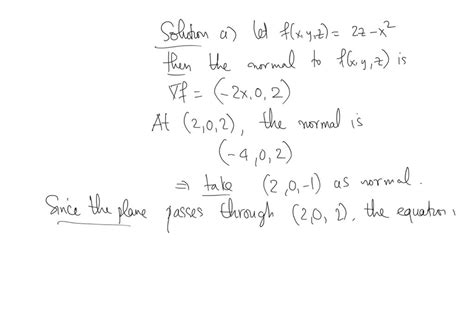 Solution a) let f(x,y,z) = 2z - x²
then the normal to f(x,y,z) is
∇f = (-2x, 0, 2)
At (2,0,2), the normal is
(-4, 0, 2)
⇒ take (2, 0, -1) as normal.
Since the plane passes through (2,0,2), the equation